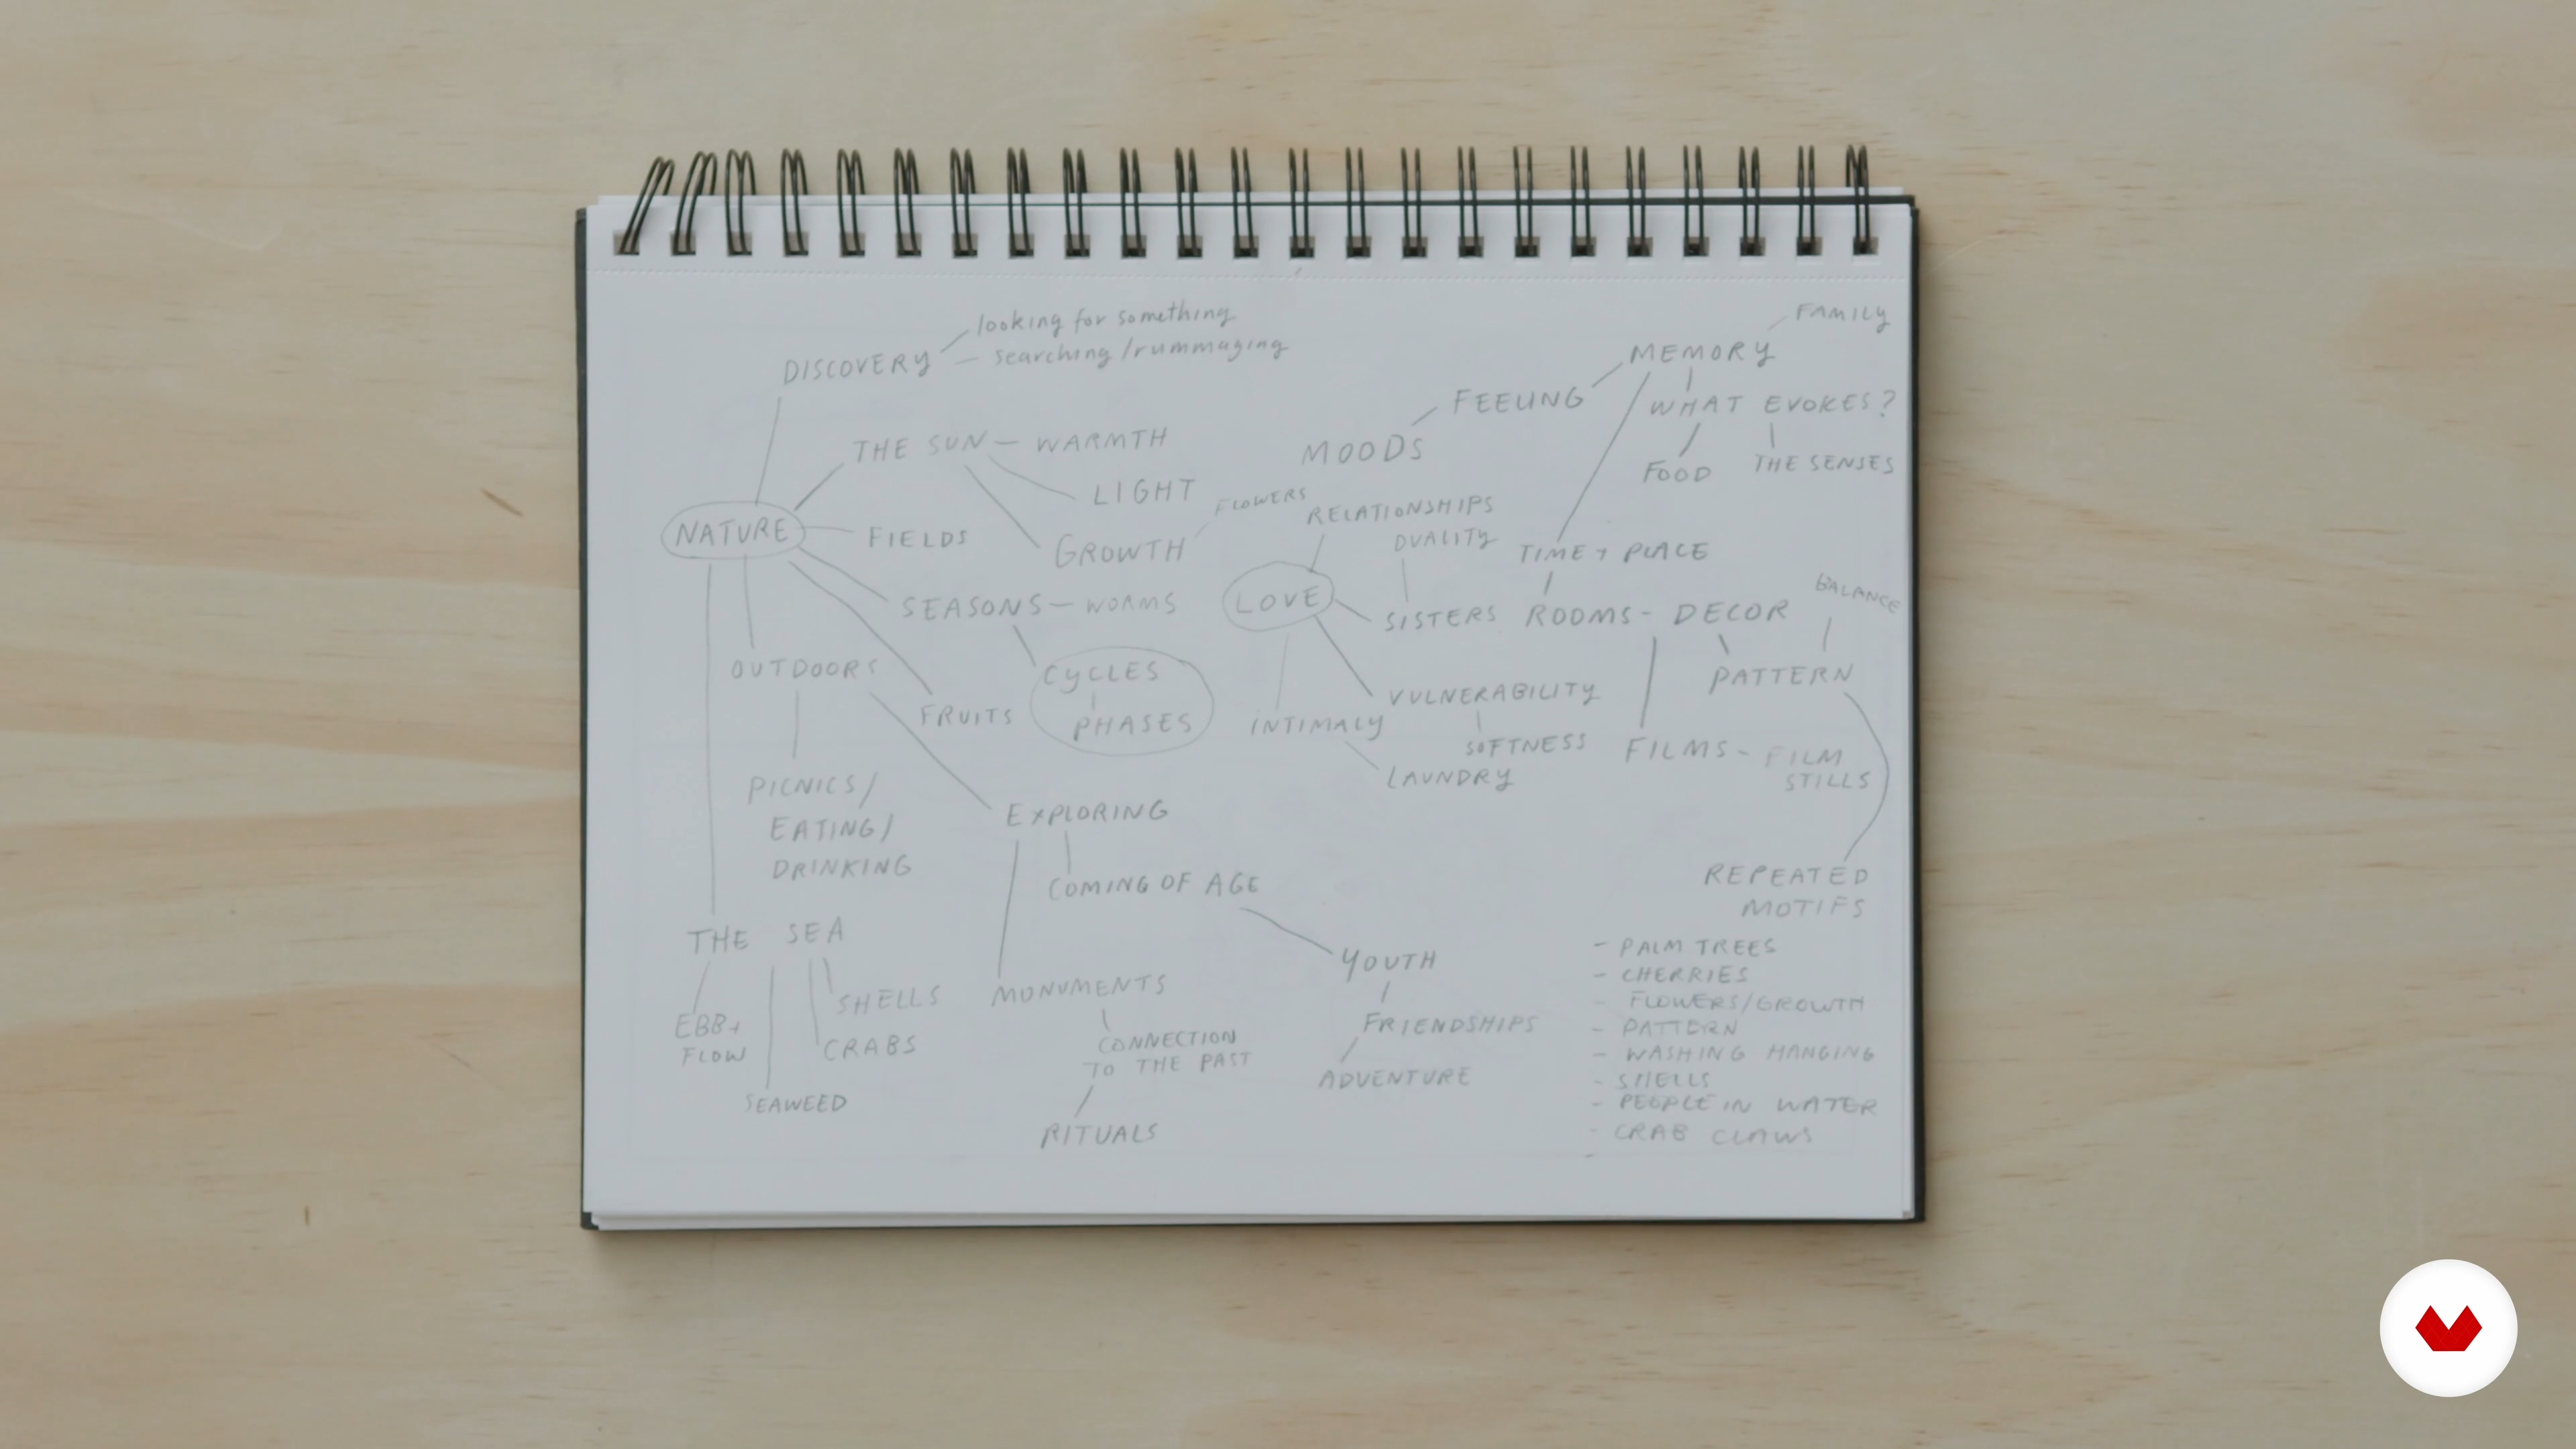 looking for something
DISCOVERY
searching/rummaging
THE SUN - WARMTH
LIGHT
FLOWERS
NATURE
FIELDS
GROWTH
SEASONS - WORMS
CYCLES
PHASES
OUTDOORS
FRUITS
PICNICS/
EATING/
DRINKING
EXPLORING
COMING OF AGE
THE SEA
SHELLS
EBB +
FLOW
CRABS
SEAWEED
MONUMENTS
CONNECTION
TO THE PAST
RITUALS
YOUTH
FRIENDSHIPS
ADVENTURE
FAMILY
MEMORY
FEELING
WHAT EVOKES?
MOODS
FOOD
THE SENSES
RELATIONSHIPS
DUALITY
TIME + PLACE
LOVE
BALANCE
SISTERS
ROOMS - DECOR
PATTERN
VULNERABILITY
INTIMACY
SOFTNESS
LAUNDRY
FILMS - FILM
STILLS
REPEATED
MOTIFS
- PALM TREES
- CHERRIES
- FLOWERS/GROWTH
- PATTERN
- WASHING HANGING
- SHELLS
- PEOPLE IN WATER
- CRAB CLAWS
-